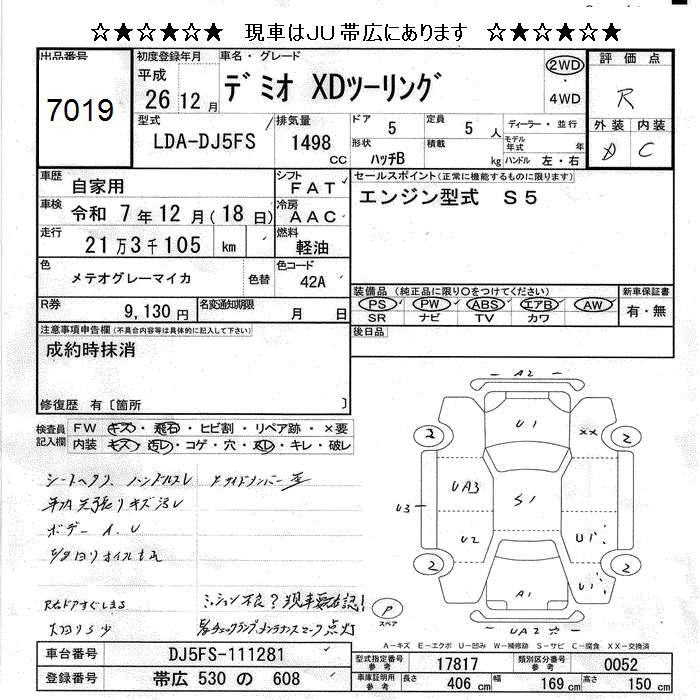 ☆★☆★☆★ 現車はJU帯広にあります ☆★☆★☆★
出品番号
7019
初度登録年月
平成
26 12 月
車名・グレード
デミオ XDツーリング
2WD
4WD
評価点
R
外装 内装
D C
型式
LDA-DJ5FS
排気量
1498 CC
ドア 5
定員 5 人
ディーラー・並行
形状
ハッチB
積載 kg
モデル年式 年
ハンドル 左・右
車歴
自家用
シフト
FAT
車検
令和 7年12月(18日)
冷房
AAC
走行
21万3千105 km
燃料
軽油
色
メテオグレーマイカ
色替
色コード
42A
R券
9,130円
名変通知期限
月 日
セールスポイント(正常に機能するものに限ります)
エンジン型式 S5
装備品(純正品に限り○をつけてください)
PS・PW・ABS・エアB・AW
SR ナビ TV カワ
新車保証書
有・無
後日品
注意事項申告欄(不具合内容等は具体的に記入して下さい)
成約時抹消
修復歴 有〔箇所 〕
検査員記入欄
FW キズ・飛石・ヒビ割・リペア跡・×要
内装 キズ・汚レ・コゲ・穴・スレ・キレ・破レ
ボデー A.U
A2
U1
2
2
××
UA3
S1
U3
U2
U1
2
2
U1
A1
UA2
P
スペア
A-キズ E-エクボ U-凹み W-補修跡 S-サビ C-腐食 XX-交換済
車台番号
DJ5FS-111281
登録番号
帯広 530 の 608
型式指定番号 参考
17817
類別区分番号 参考
0052
車庫証明用 参考
長さ 406 cm
幅 169 cm
高さ 150 cm